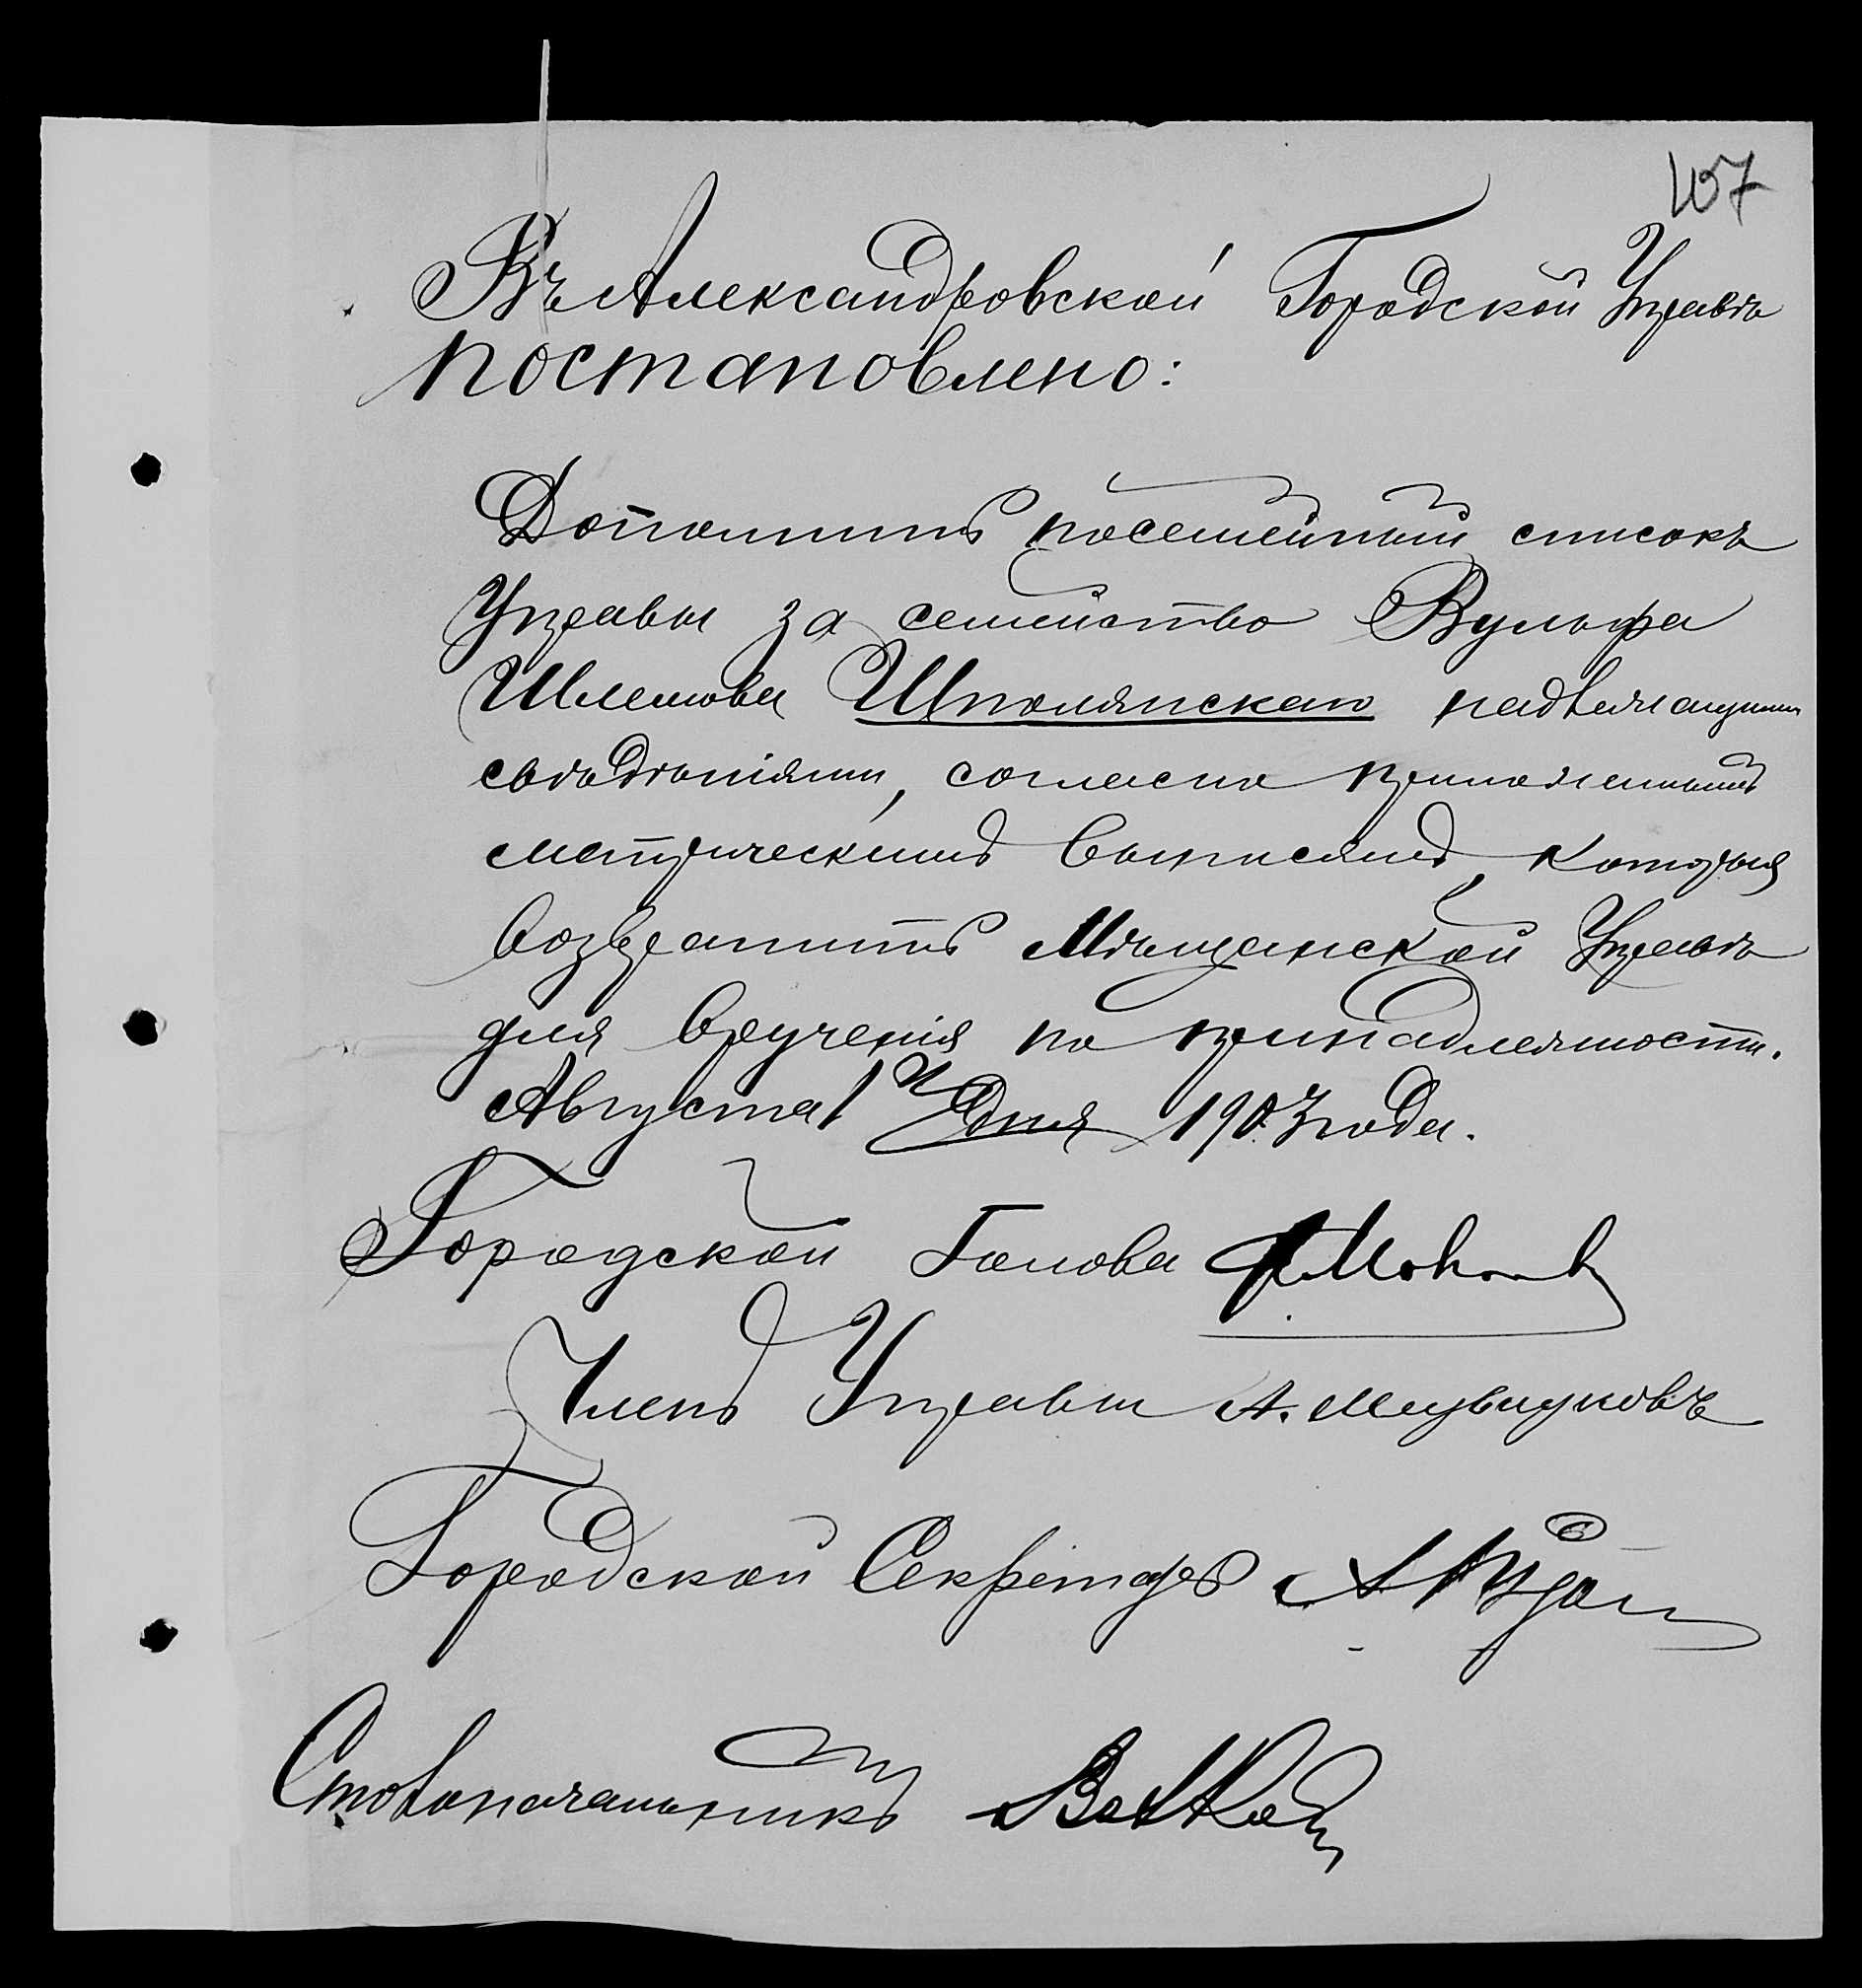 107
Въ Александровской Городской Управѣ
постановлено:
Дополнить посемейный списокъ
Управы за семейство Вульфа
Шлемова Шполянскаго надлежащими
свѣдѣніями, согласно приложеннымъ
метрическимъ выписямъ, которыя
возвратить Мѣщанской Управѣ
для врученія по принадлежности.
Августа 1 дня 1903 года.
Городской Голова
Членъ Управы А.
Городской Секретарь
Столоначальникъ